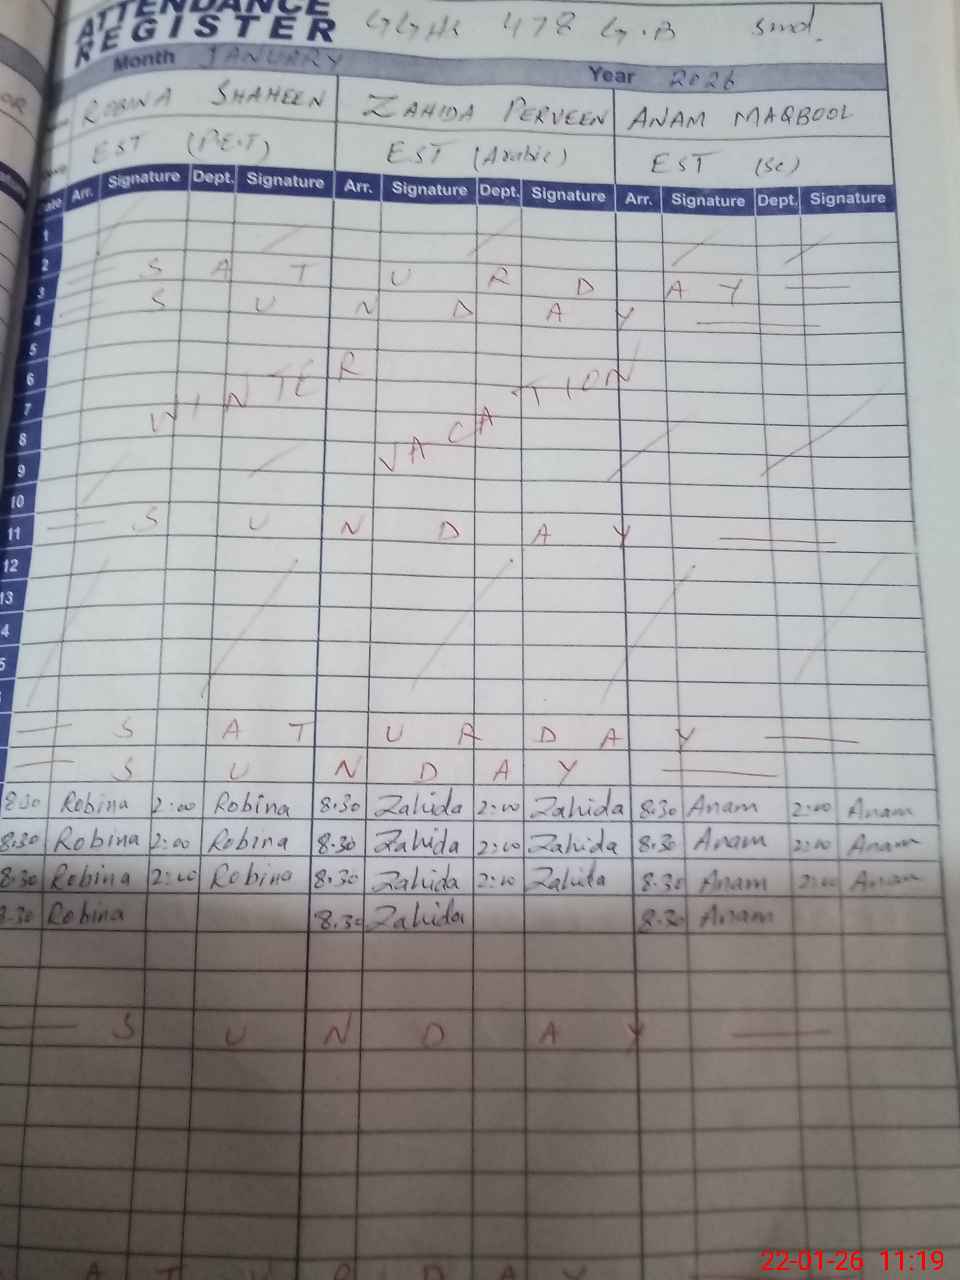 ATTENDANCE
REGISTER GGHS 478 G.B Smd.
Month JANUARY Year 2026
ROBINA SHAHEEN ZAHIDA PERVEEN ANAM MAQBOOL
EST (P.E.T) EST (Arabic) EST (Sc)
Arr. Signature Dept. Signature Arr. Signature Dept. Signature Arr. Signature Dept. Signature
1
2
3 SATURDAY
4 SUNDAY
5
6
7 WINTER VACATION
8
9
10
11 SUNDAY
12
13
4
5
SATURDAY
SUNDAY
8:30 Robina 2:00 Robina 8:30 Zahida 2:00 Zahida 8:30 Anam 2:00 Anam
8:30 Robina 2:00 Robina 8:30 Zahida 2:00 Zahida 8:30 Anam 2:00 Anam
8:30 Robina 2:00 Robina 8:30 Zahida 2:00 Zahida 8:30 Anam 2:00 Anam
8:30 Robina 8:30 Zahida 8:30 Anam
SUNDAY
22-01-26 11:19